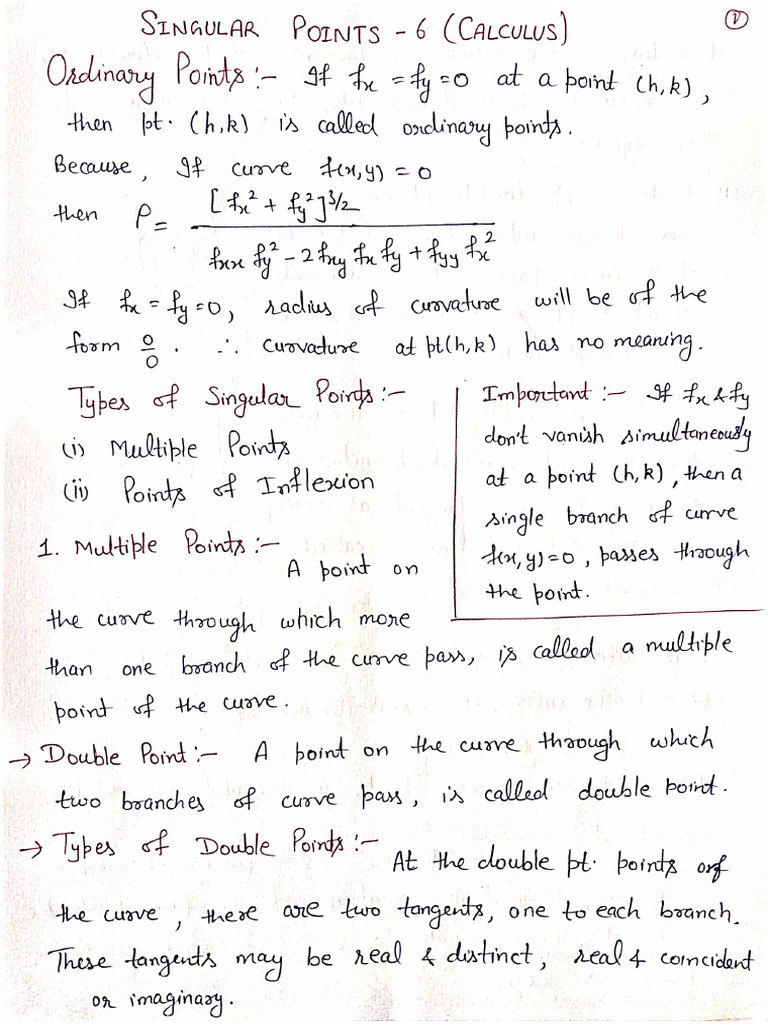 SINGULAR POINTS - 6 (CALCULUS)
1
Ordinary Points :- If fx = fy = 0 at a point (h,k),
then pt. (h,k) is called ordinary points.
Because, If curve f(x,y) = 0
then ρ = [fx² + fy²]^3/2 / fxx fy² - 2 fxy fx fy + fyy fx²
If fx = fy = 0, radius of curvature will be of the
form 0/0 . ∴ curvature at pt(h,k) has no meaning.
Types of Singular Points :-
(i) Multiple Points
(ii) Points of Inflexion
Important :- If fx & fy
don't vanish simultaneously
at a point (h,k), then a
single branch of curve
f(x,y)=0, passes through
the point.
1. Multiple Points :-
A point on
the curve through which more
than one branch of the curve pass, is called a multiple
point of the curve.
→ Double Point :- A point on the curve through which
two branches of curve pass, is called double point.
→ Types of Double Points :-
At the double pt. points of
the curve, there are two tangents, one to each branch.
These tangents may be real & distinct, real & coincident
or imaginary.